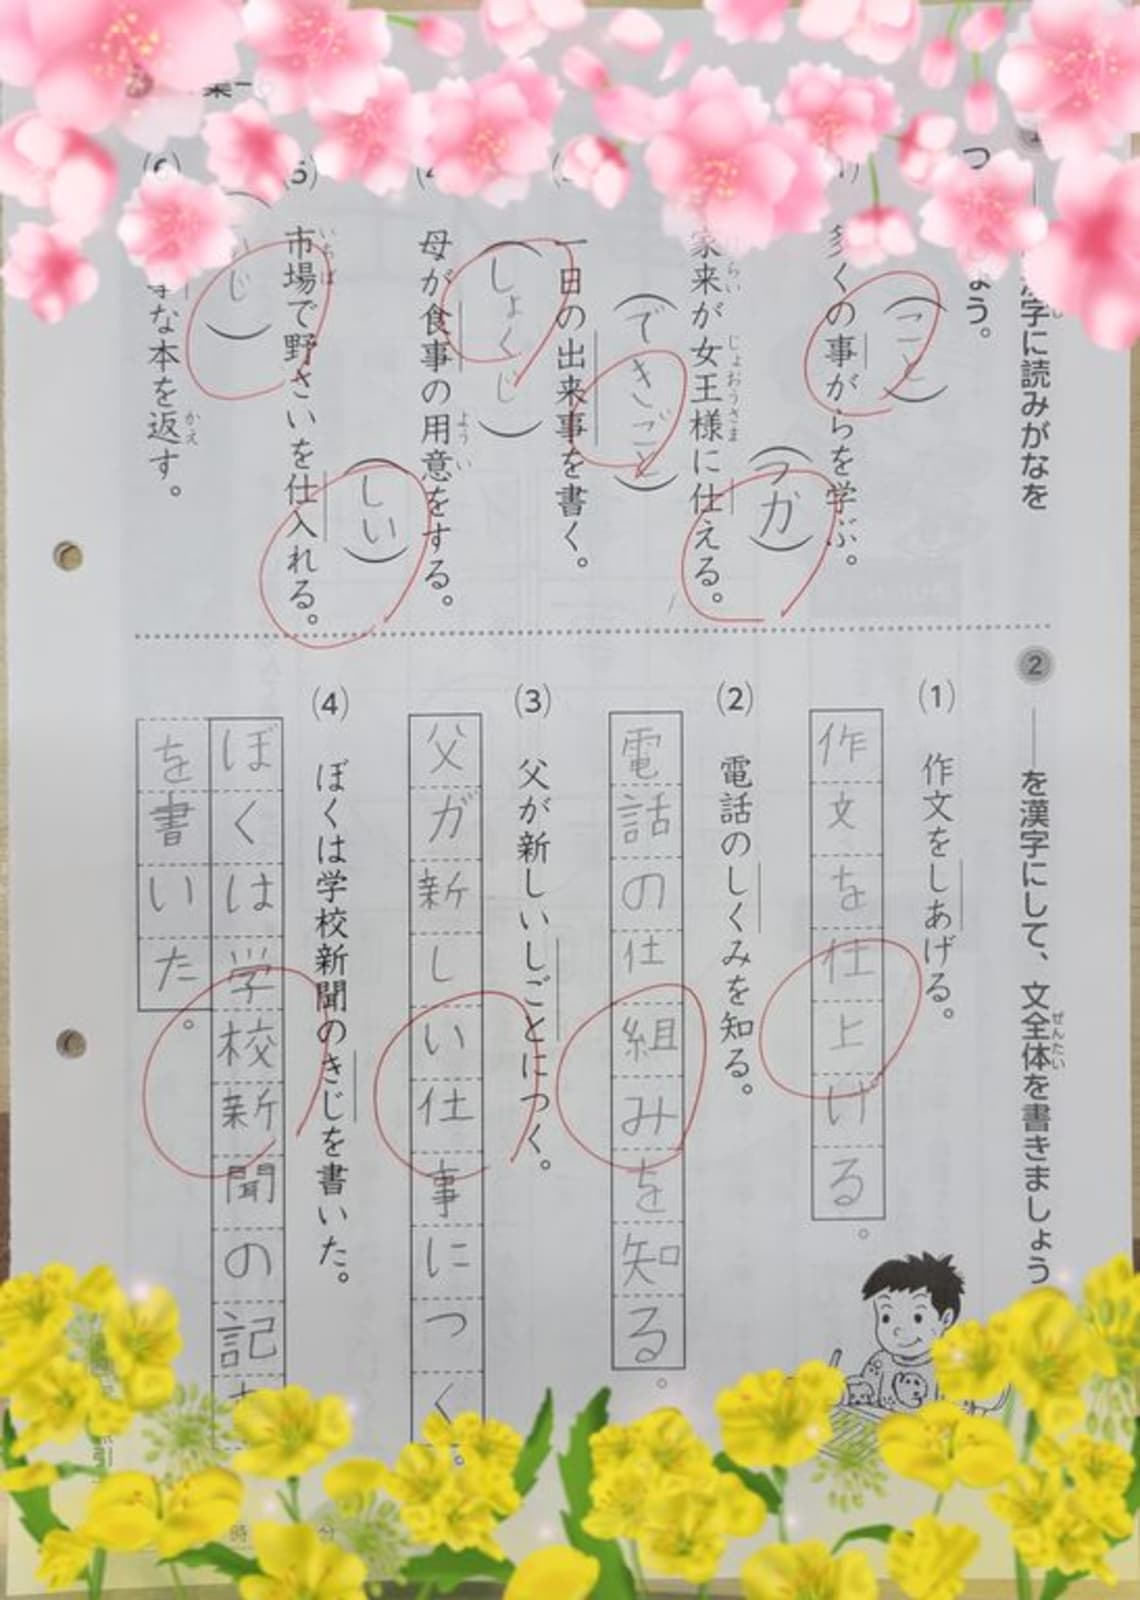 漢字に読みがなを
つ
ょう。
(1) 多くの事がらを学ぶ。
(こと)
家来が女王様に仕える。
けらい じょおうさま
(つか)
一日の出来事を書く。
(できごと)
母が食事の用意をする。
ようい
(しょくじ)
(5) 市場で野さいを仕入れる。
いちば
(しい)
(6)
な本を返す。
かえ
じ)
②
を漢字にして、文全体を書きましょう
ぜんたい
(1) 作文をしあげる。
作文を仕上げる。
(2) 電話のしくみを知る。
電話の仕組みを知る。
(3) 父が新しいしごとにつく。
父が新しい仕事につく。
(4) ぼくは学校新聞のきじを書いた。
ぼくは学校新聞の記
を書いた。
時 分